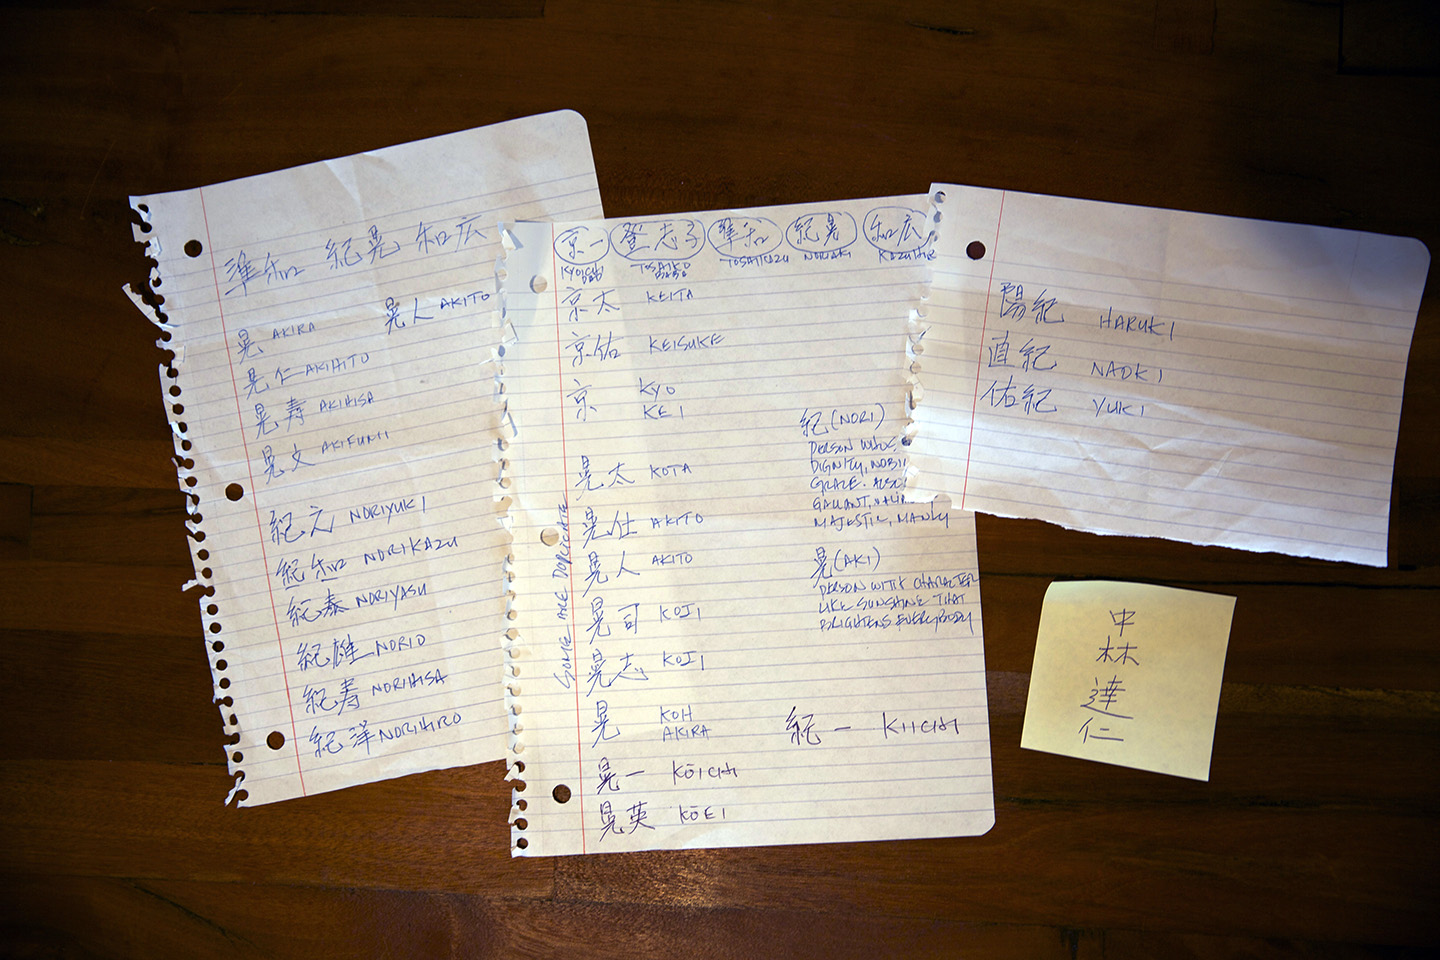 準和 紀晃 和広
晃 AKIRA 晃人 AKITO
晃仁 AKIHITO
晃寿 AKIHISA
晃文 AKIFUMI
紀元 NORIYUKI
紀和 NORIKAZU
紀泰 NORIYASU
紀雄 NORIO
紀寿 NORIHISA
紀洋 NORIHIRO
京一 登志子 準和 紀晃 和広
KYOICHI TOSHIKO TOSHIKAZU NORIAKI
京太 KEITA
京佑 KEISUKE
京 KYO
KEI
晃太 KOTA
晃仕 AKITO
晃人 AKITO
晃司 KOJI
晃志 KOJI
晃 KOH
AKIRA
晃一 KŌICHI
晃英 KŌEI
SOME ARE DUPLICATE
紀(NORI)
PERSON
DIGNITY,
GRACE.
GALLANT,
MAJESTIC, MANLY
晃(AKI)
PERSON WITH CHARACTER
LIKE SUNSHINE THAT
BRIGHTENS EVERYBODY
紀一 KIICHI
陽紀 HARUKI
直紀 NAOKI
佑紀 YUKI
中
林
達
仁